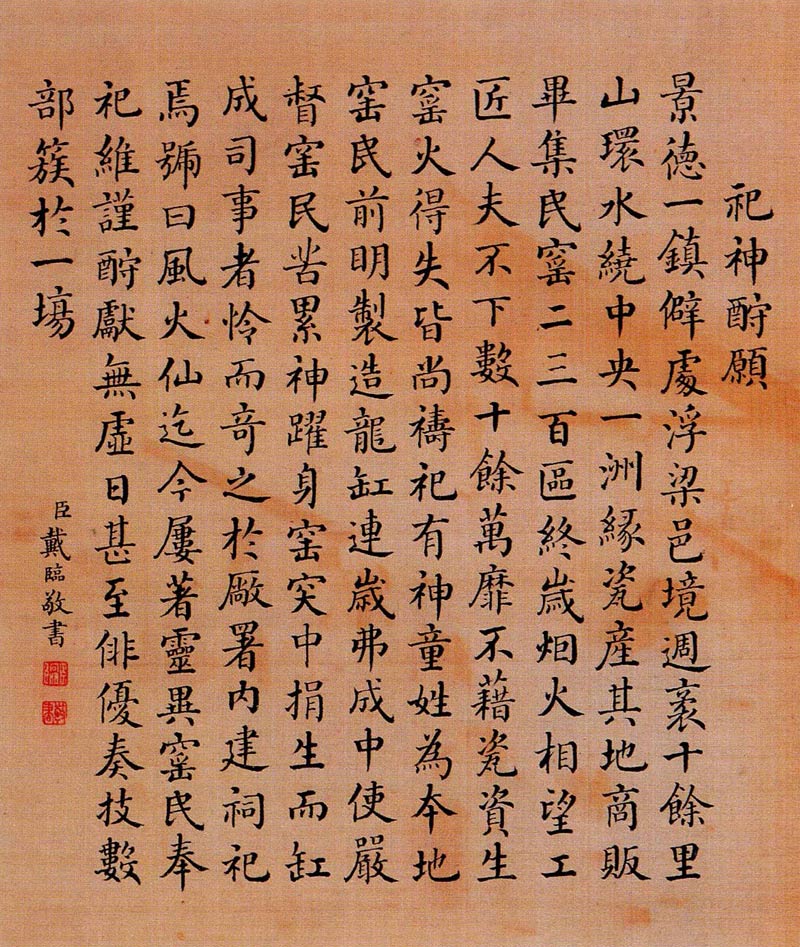 祀神酧願
景德一鎮僻處浮梁邑境週袤十餘里
山環水繞中央一洲緣瓷產其地商販
畢集民窰二三百區終歲烟火相望工
匠人夫不下數十餘萬靡不藉瓷資生
窰火得失皆尚禱祀有神童姓為本地
窑民前明製造龍缸連歲弗成中使嚴
督窑民苦累神躍身窑突中捐生而缸
成司事者怜而竒之於厰署内建祠祀
焉號曰風火仙迄今屢著靈異窰民奉
祀維謹酧獻無虛日甚至俳優奏技數
部簇於一塲
臣戴臨敬書